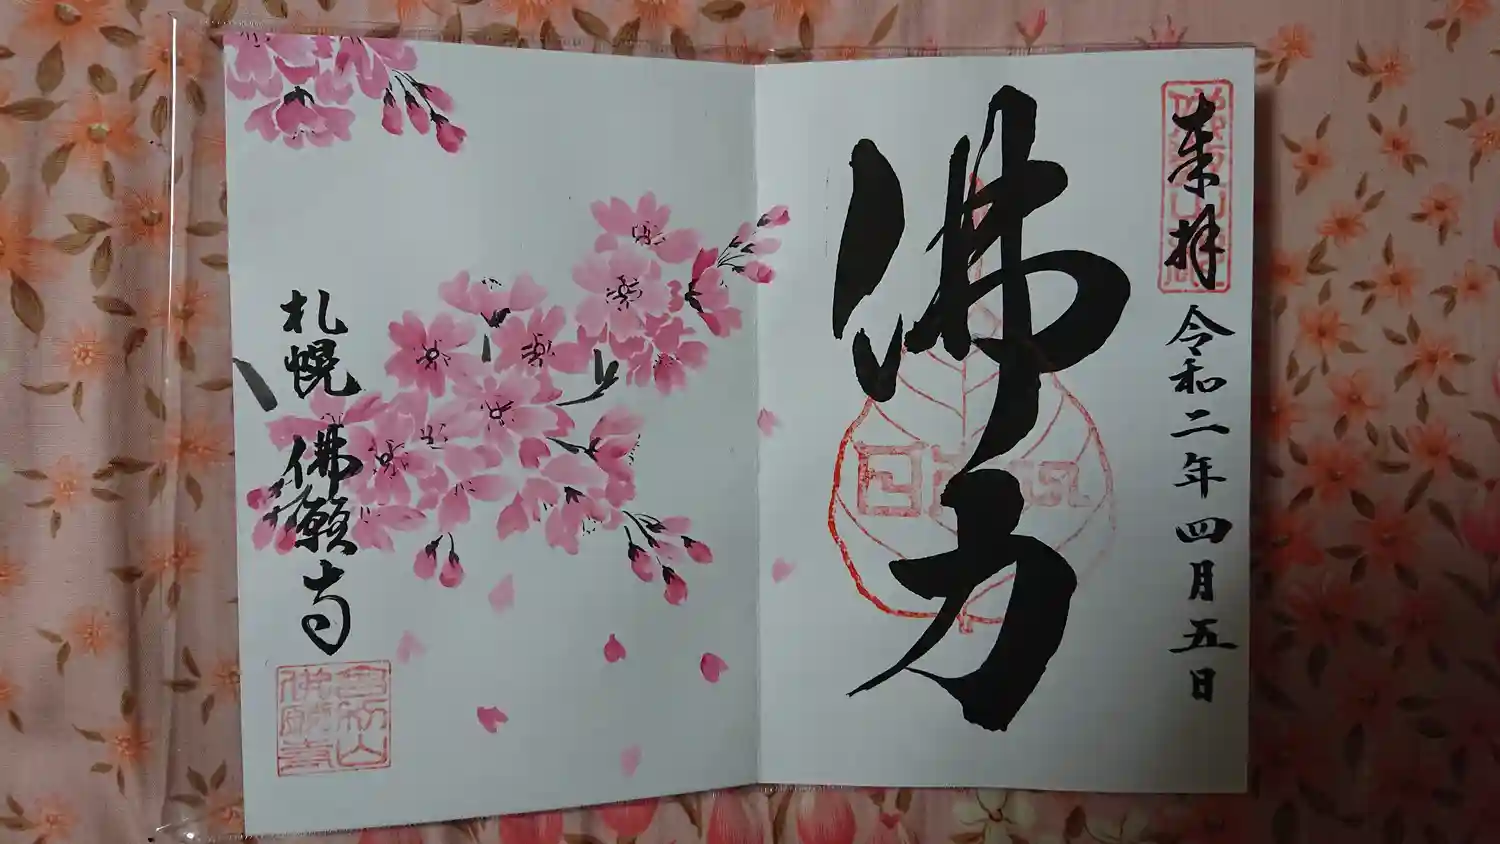 来拝
令和二年四月五日
佛力
札幌 佛願寺